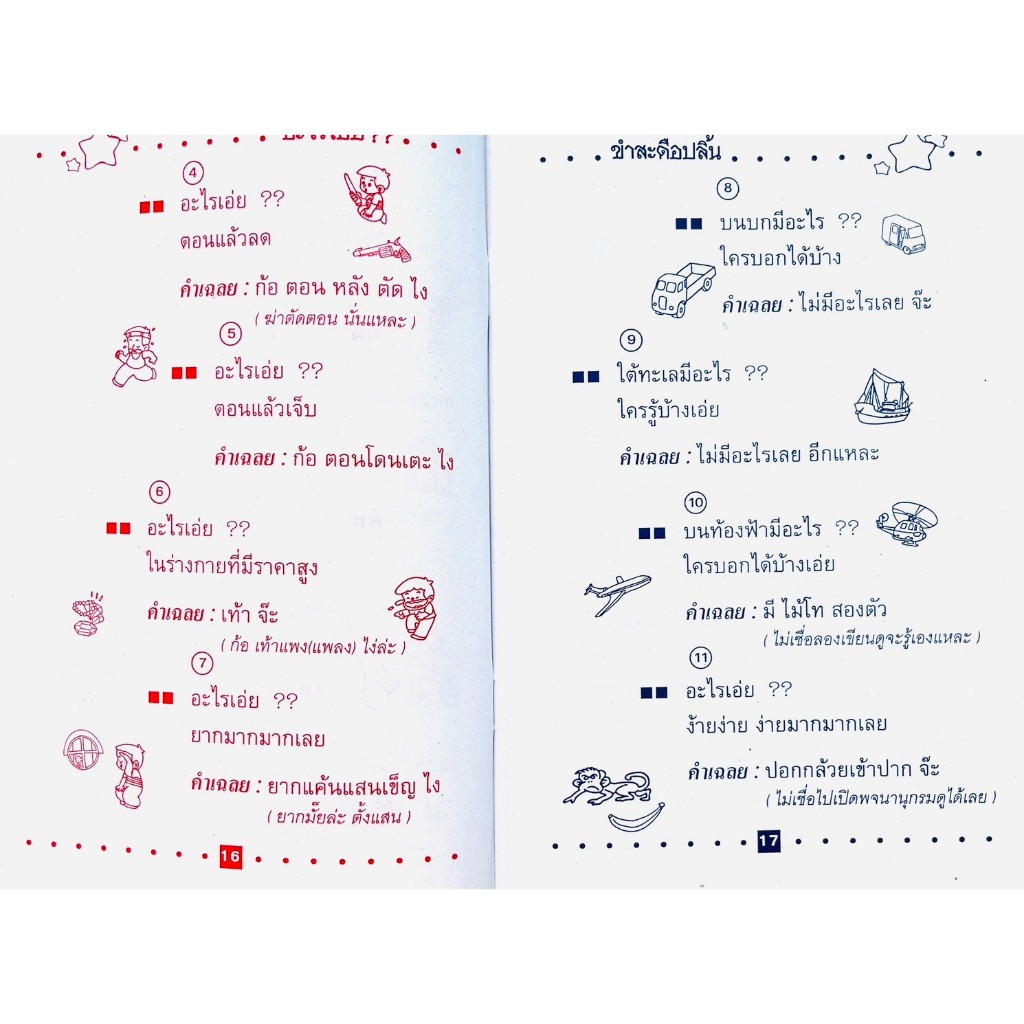 อะไรเอ่ย ??
④
อะไรเอ่ย ??
ตอนแล้วลด
คำเฉลย : ก้อ ตอน หลัง ตัด ไง
( ฆ่าตัดตอน นั่นแหละ )
⑤
อะไรเอ่ย ??
ตอนแล้วเจ็บ
คำเฉลย : ก้อ ตอนโดนเตะ ไง
⑥
อะไรเอ่ย ??
ในร่างกายที่มีราคาสูง
คำเฉลย : เท้า จ๊ะ
( ก้อ เท้าแพง(แพลง) ไง่ล่ะ )
⑦
อะไรเอ่ย ??
ยากมากมากเลย
คำเฉลย : ยากแค้นแสนเข็ญ ไง
( ยากมั๊ยล่ะ ตั้งแสน )
16
ขำสะดือปลิ้น
⑧
บนบกมีอะไร ??
ใครบอกได้บ้าง
คำเฉลย : ไม่มีอะไรเลย จ๊ะ
⑨
ใต้ทะเลมีอะไร ??
ใครรู้บ้างเอ่ย
คำเฉลย : ไม่มีอะไรเลย อีกแหละ
⑩
บนท้องฟ้ามีอะไร ??
ใครบอกได้บ้างเอ่ย
คำเฉลย : มี ไม้โท สองตัว
( ไม่เชื่อลองเขียนดูจะรู้เองแหละ )
⑪
อะไรเอ่ย ??
ง้ายง่าย ง่ายมากมากเลย
คำเฉลย : ปอกกล้วยเข้าปาก จ๊ะ
( ไม่เชื่อไปเปิดพจนานุกรมดูได้เลย )
17